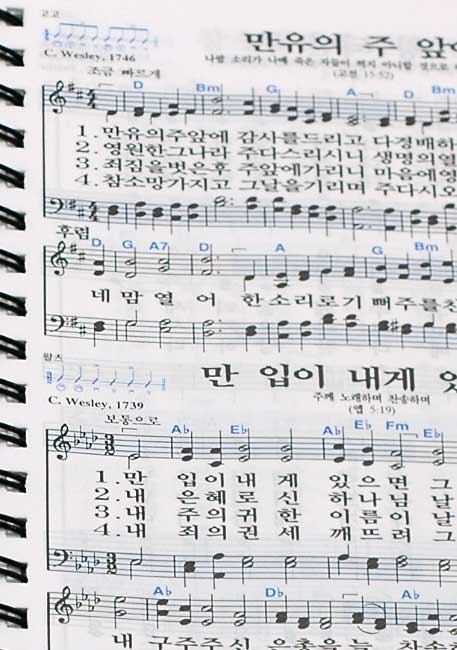 고고
만유의 주 앞에
C. Wesley, 1746
나팔 소리가 나매 죽은 자들이 썩지 아니할 것으로
조금 빠르게
(고전 15:52)
D Bm G A D
1. 만유의주앞에 감사를드리고 다경배하
2. 영원한그나라 주다스리시니 생명의열
3. 죄짐을벗은후 주앞에가리니 마음에영
4. 참소망가지고 그날을기리며 주다시오
후렴
D G A7 D A G Bm
네 맘 열 어 한소리로기 뻐주를찬
왈츠
만 입이 내게
C. Wesley, 1739
주께 노래하며 찬송하며
(엡 5:19)
보통으로
A♭ E♭ A♭ E♭ Fm E♭
1. 만 입이내 게 있으면 그
2. 내 은혜로신 하나님 날
3. 내 주의귀한 이름이 날
4. 내 죄의권세 깨뜨려 그
A♭ D♭ A♭
내 구주주신 은총을늘 찬송하